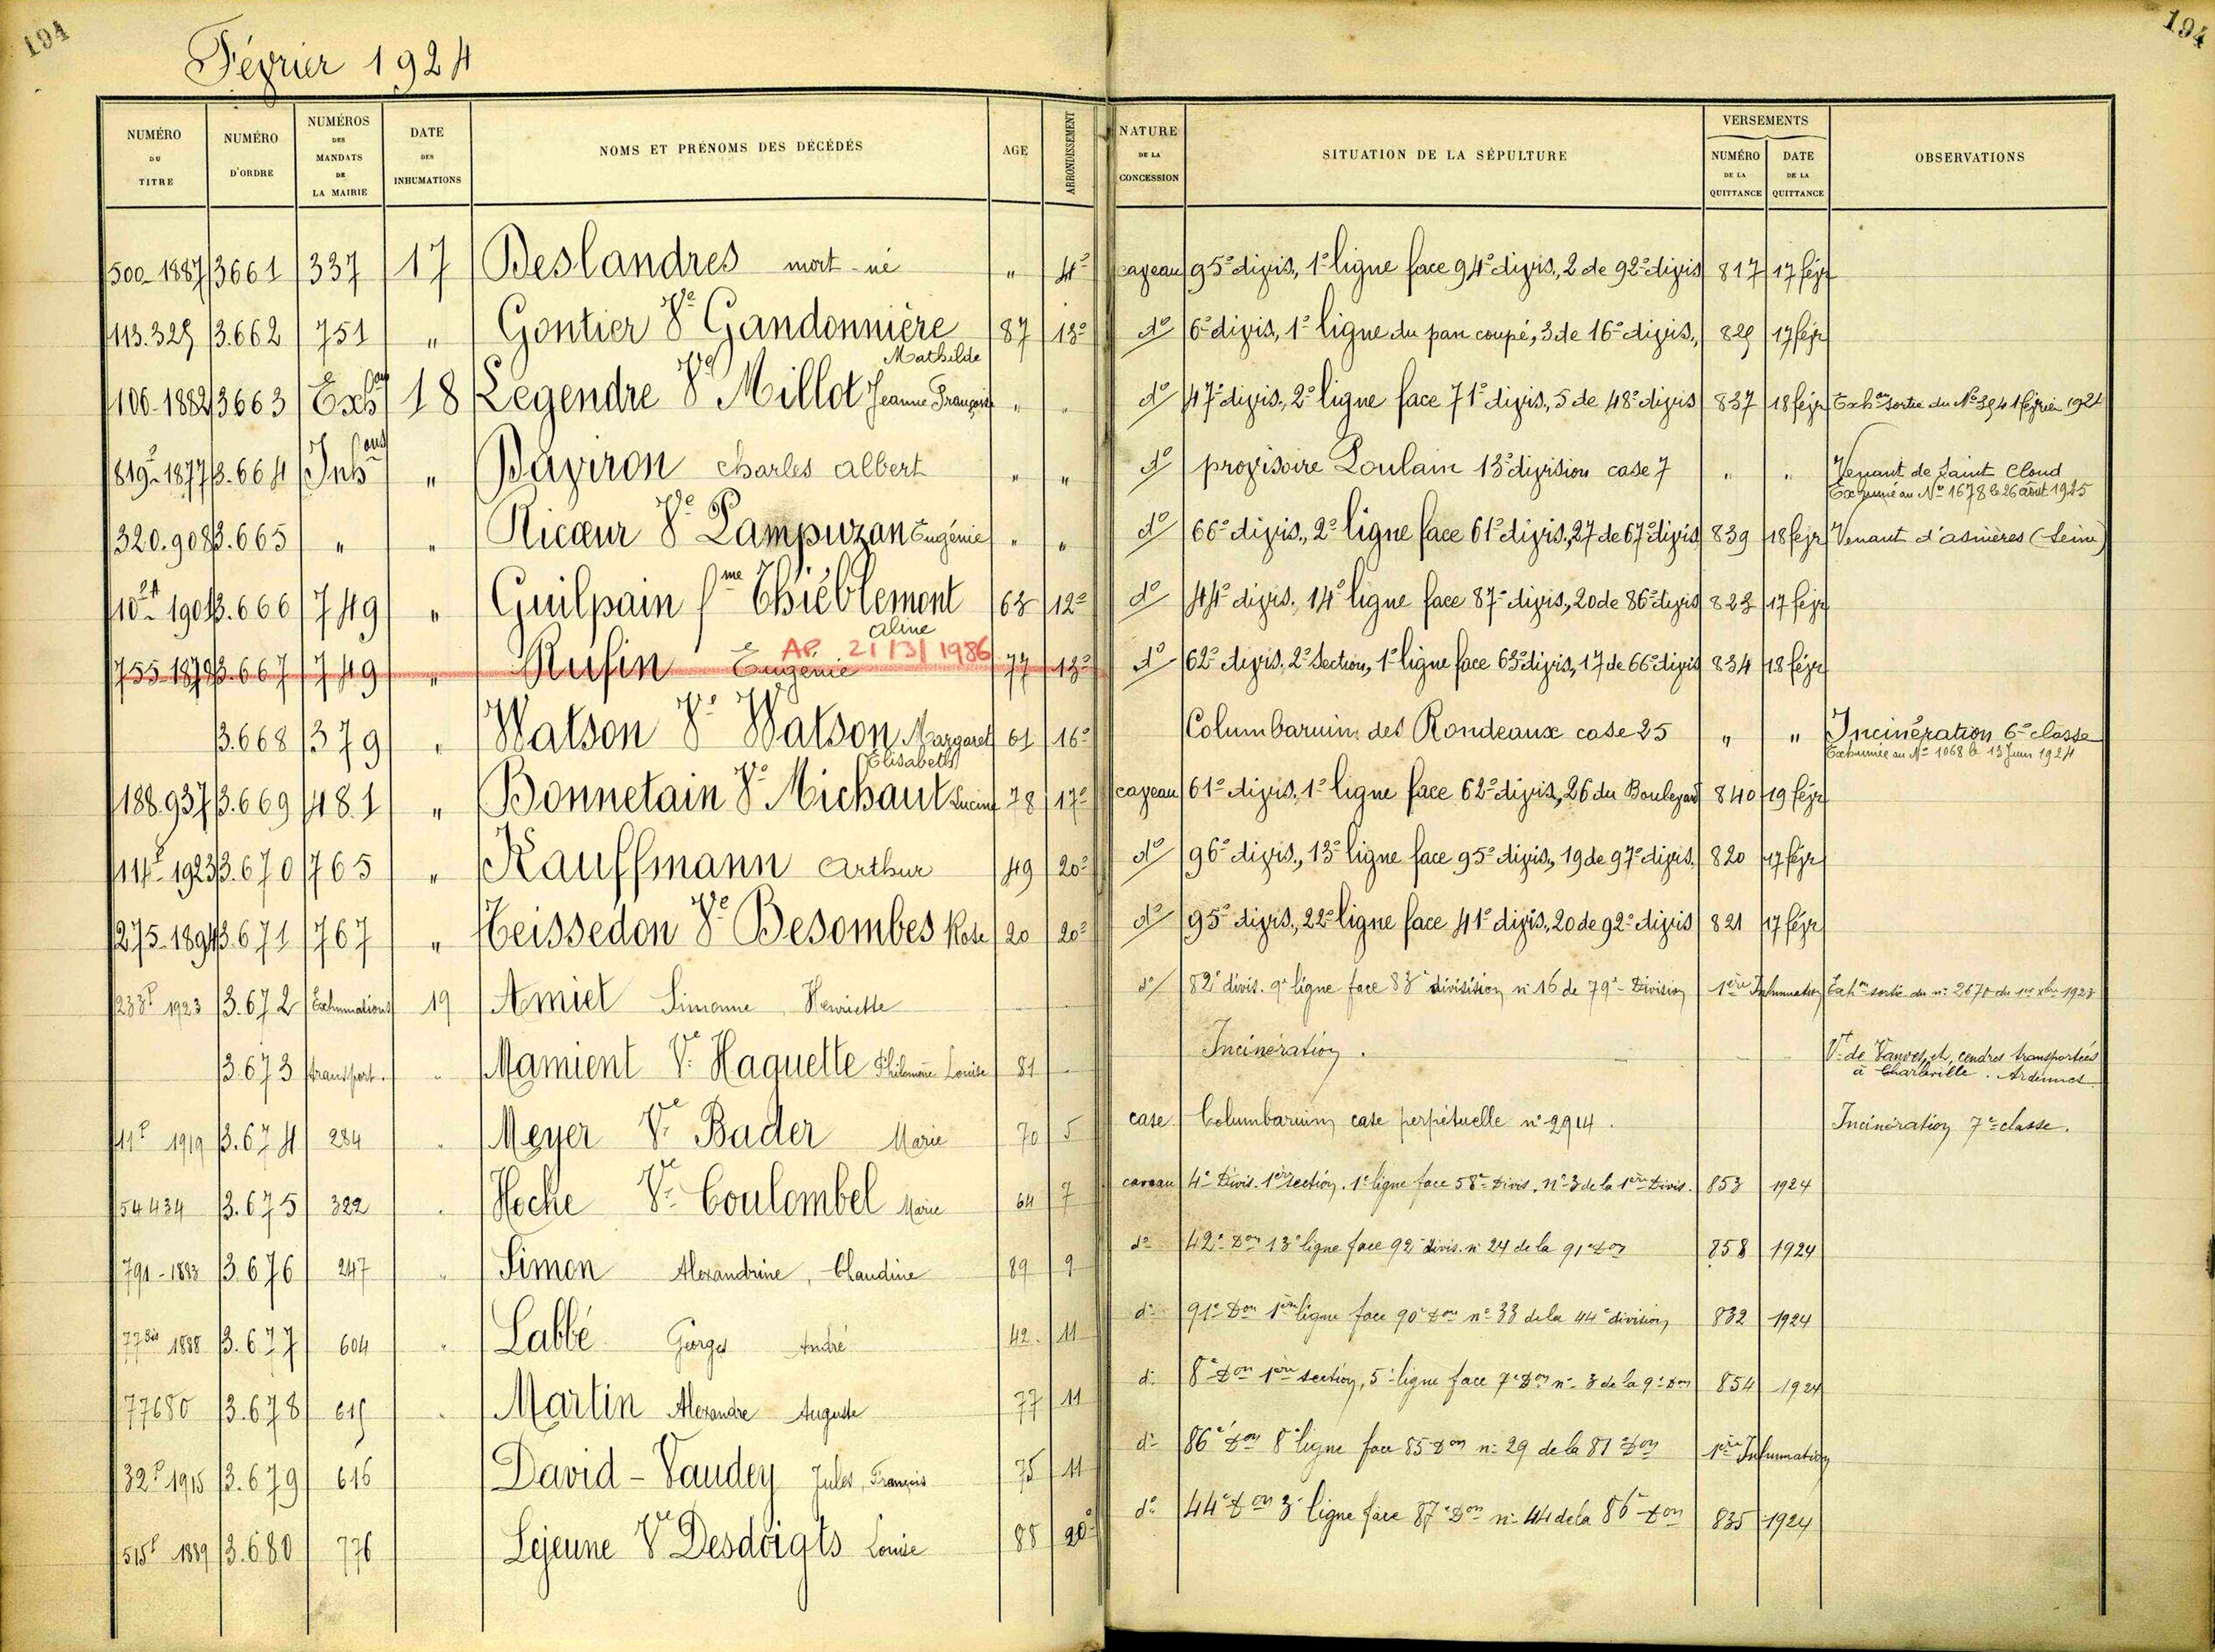 194
194
Février 1924
NUMÉRO DU TITRE | NUMÉRO D'ORDRE | NUMÉROS DES MANDATS DE LA MAIRIE | DATE DES INHUMATIONS | NOMS ET PRÉNOMS DES DÉCÉDÉS | AGE | ARRONDISSEMENT | NATURE DE LA CONCESSION | SITUATION DE LA SÉPULTURE | VERSEMENTS NUMÉRO DE LA QUITTANCE | DATE DE LA QUITTANCE | OBSERVATIONS
500-1887 3661 337 17 Deslandres mort-né " 4e caveau 95e divis., 1e ligne face 94e divis., 2 de 92e divis 817 17 févr
113.329 3.662 751 " Gontier Ve Gandonnière Mathilde 87 13e do 6e divis, 1e ligne du pan coupé, 3 de 16e divis., 829 17 févr
106-1882 3663 Exhon 18 Legendre Ve Millot Jeanne Françoise " " do 47e divis., 2e ligne face 71e divis., 5 de 48e divis 837 18 févr Exhon sortie du No 394 1 février 1924
819-1877 3.664 Inhons " Baviron Charles Albert " " do provisoire Poulain 13e division case 7 " " Venant de Saint Cloud
Exhumé au No 1678 le 26 août 1925
320.908 3.665 " " Ricœur Ve Lampuzan Eugénie " " do 66e divis., 2e ligne face 61e divis., 27 de 67e divis 839 18 févr Venant d'asnières (Seine)
1901 3.666 749 " Guilpain fme Thiéblemont Aline 63 12e do 44e divis. 14e ligne face 87e divis., 20 de 86e divis 823 17 févr
AP. 21/3/1986
755-1879 3.667 749 " Rufin Eugénie 77 13e do 62e divis. 2e Section, 1e ligne face 63e divis, 17 de 66e divis 834 18 févr
3.668 379 " Watson Ve Watson Margaret Elisabeth 61 16e Columbarium des Rondeaux case 25 " " Incinération 6e classe
Exhumée au No 1068 le 13 Juin 1924
188.937 3.669 481 " Bonnetain Ve Michaut 78 17e caveau 61e divis. 1e ligne face 62e divis, 26 du Boulevard 840 19 févr
114P 1923 3.670 765 " Kauffmann Arthur 49 20e do 96e divis., 13e ligne face 95e divis, 19 de 97e divis. 820 17 févr
275-1894 3.671 767 " Teissedon Ve Besombes Rose 20 20e do 95e divis., 22e ligne face 41e divis., 20 de 92e divis 821 17 févr
233P 1923 3.672 Exhumations 19 Amiel Simonne Henriette do 82e divis. 9e ligne face 83e divisision n° 16 de 79e Division 1ère Inhumation Exhon sortie du n° 2670 du 1er xbre 1923
3.673 transport. " Mamient Ve Haquette Philomène Louise 81 Incinération. Vt de Vanves et cendres transportées
à Charleville. Ardennes
11P 1919 3.674 284 " Meyer Ve Bader Marie 70 5 case Columbarium case perpétuelle n° 2914. Incinération 7e classe.
54434 3.675 322 " Hoche Ve Coulombel Marie 64 7 caveau 4e Divis. 1ère section. 1e ligne face 58e Divis. N° 3 de la 1ère Divis. 853 1924
791-1883 3.676 247 " Simon Alexandrine, Claudine 89 9 do 42e Don 13e ligne face 92e divis. n° 24 de la 91e Don 858 1924
77bis 1888 3.677 604 " Labbé Georges André 42 11 do 91e Don 1ère ligne face 90e Don n° 33 de la 44e division 832 1924
77680 3.678 615 " Martin Alexandre Auguste 77 11 do 8e Don 1ère section, 5e ligne face 7e Don n° 3 de la 9e Don 854 1924
32P 1915 3.679 616 David-Vaudey Jules, François 75 11 do 86e Don 8e ligne face 85 Don n° 29 de la 87e Don 1ère Inhumation
515P 1889 3.680 776 Lejeune Ve Desdoigts Louise 88 20e do 44e Don 3e ligne face 87e Don n° 44 de la 86e Don 835 1924